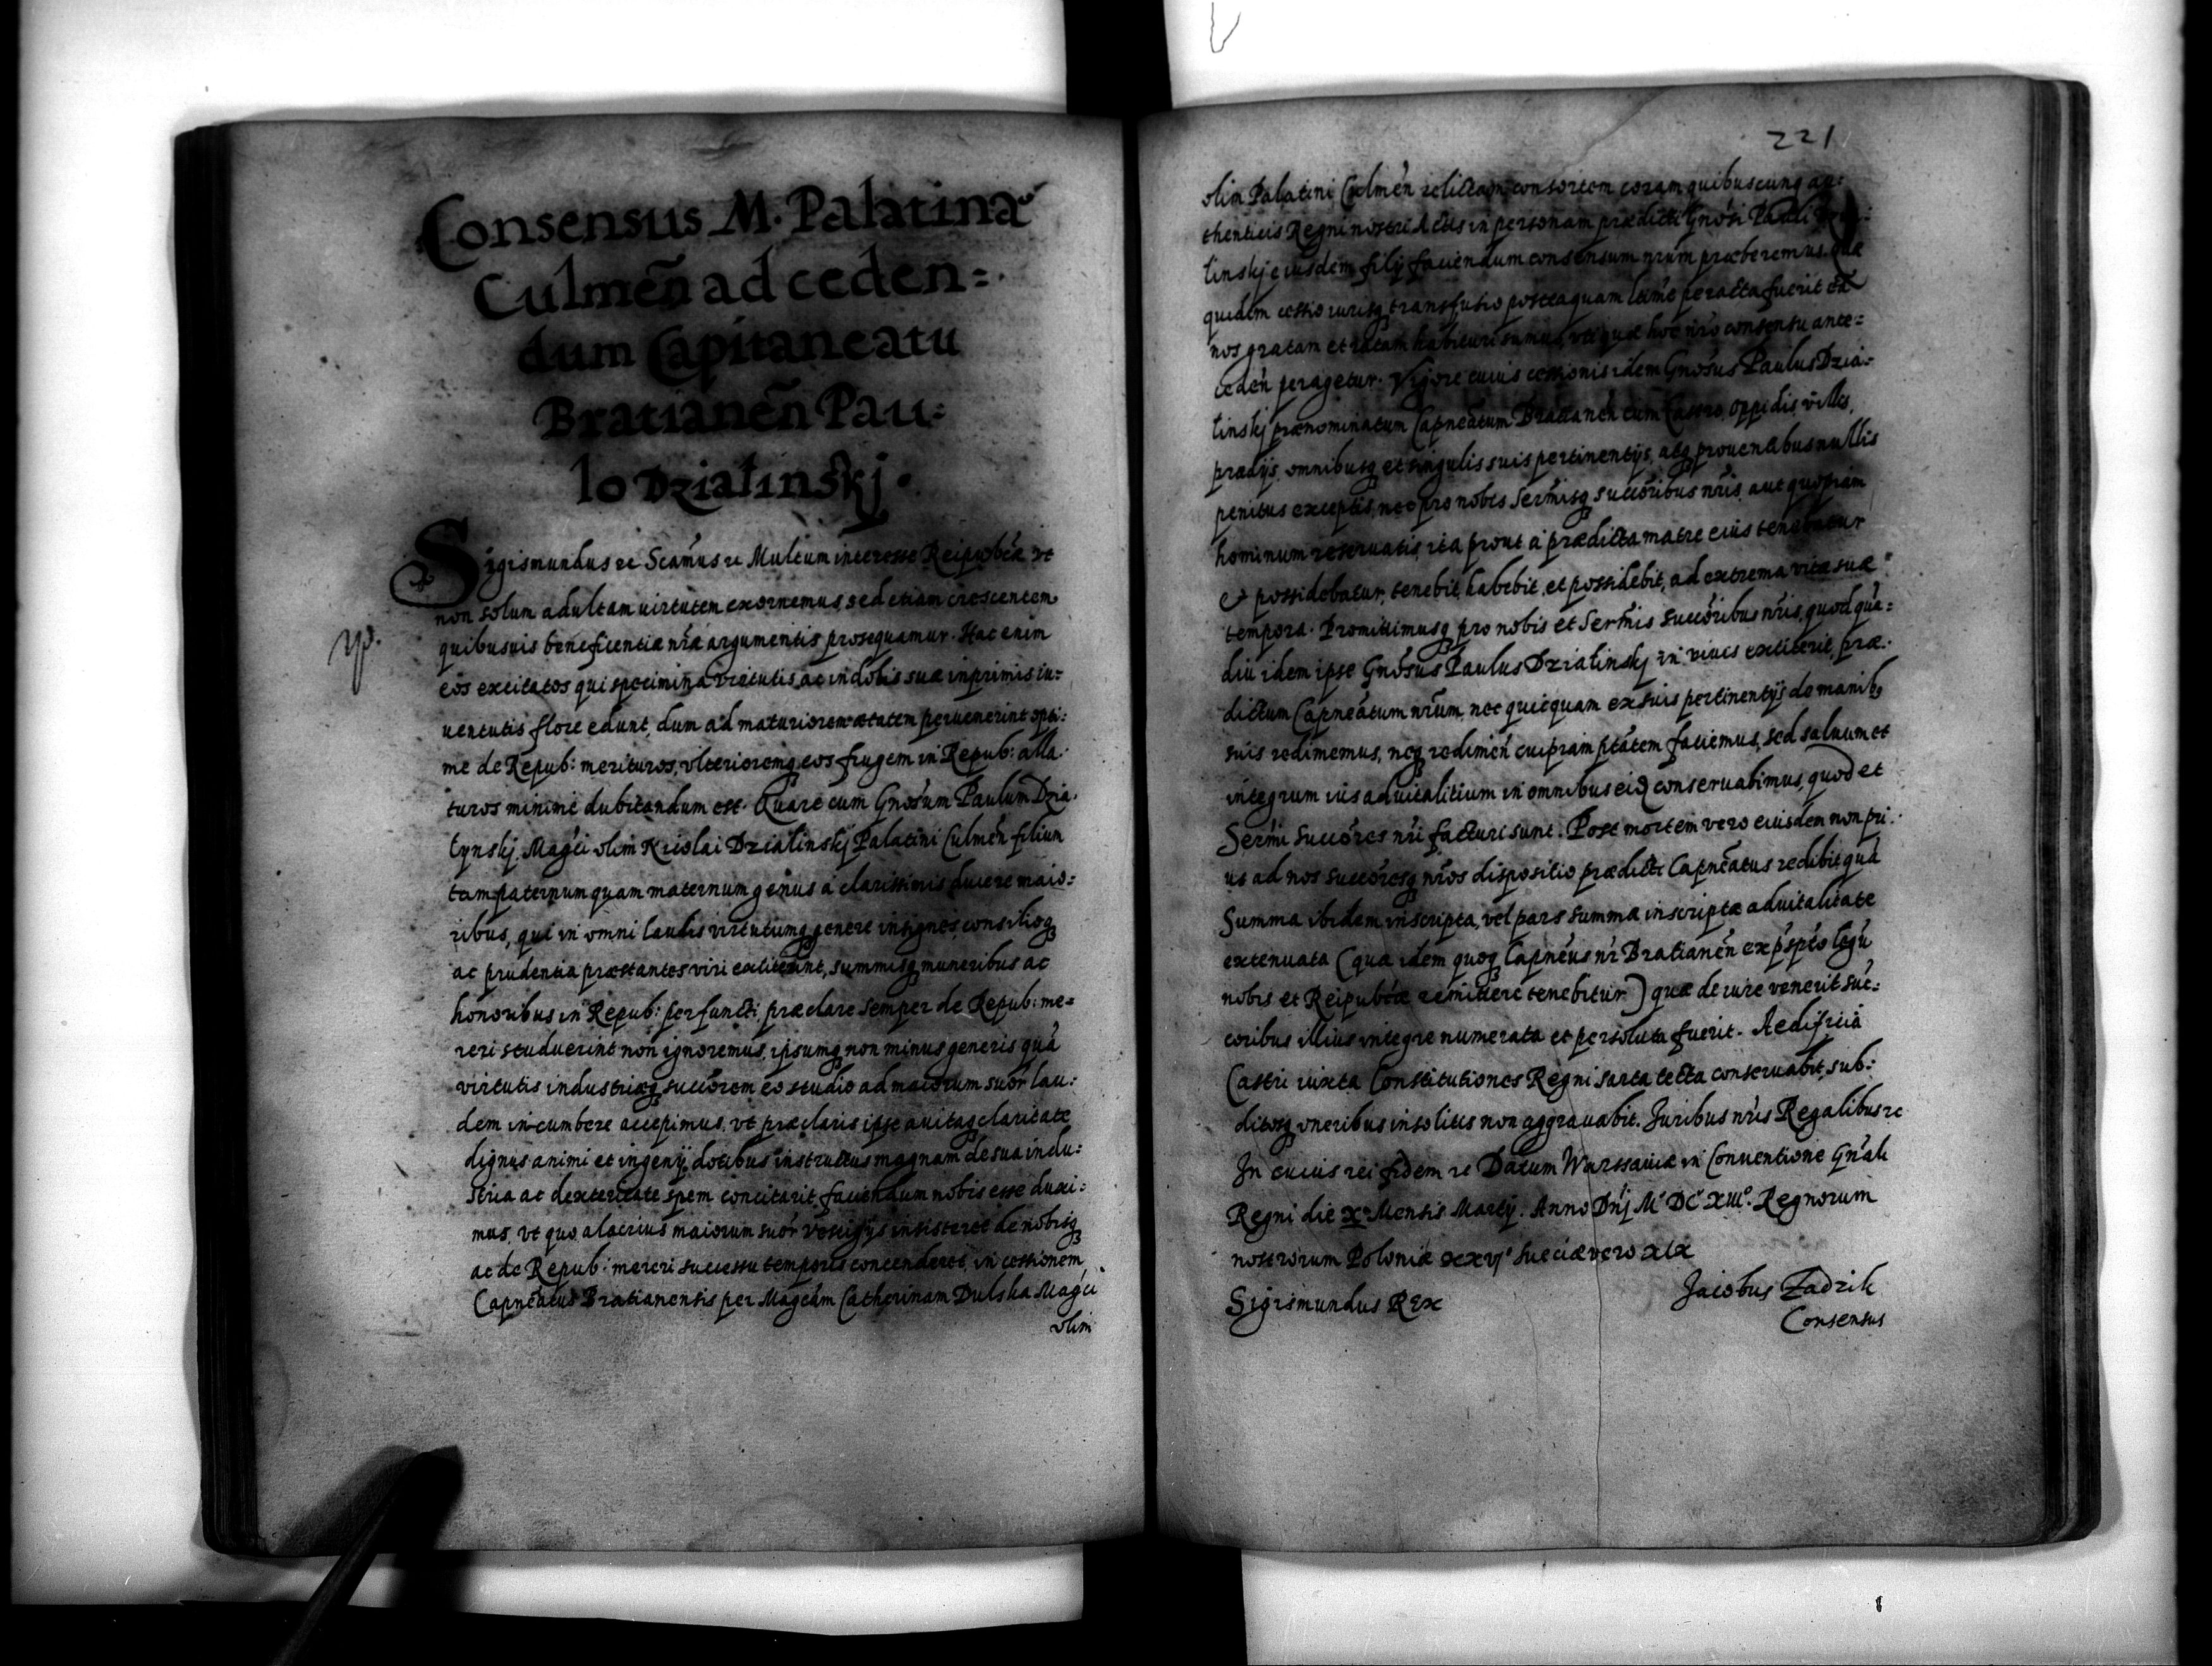 Consensus M. Palatinæ
Culmeñ ad ceden=
dum Capitaneatu
Bratianeñ Pau=
lo Działinskj.
Sigismundus etc Scimus etc Multum interesse Reipublicæ vt
non solum adultam uirtutem exornemus, sed etiam crescentem
quibusuis beneficentiæ nræ argumentis prosequamur. Hac enim
eos excitatos qui specimina virtutis ac indolis suæ inprimis iu=
uentutis flore edunt, dum ad maturiorem ætatem peruenerint opti=
me de Repub: merituros, vlterioremq eos frugem in Repub: alla=
turos minimè dubitandum est. Quare cum Gnosum Paulum Dzia=
łynskj, Magci olim Nicolai Działinskj Palatini Culmeñ filium
tam paternum quam maternum genus à clarissimis ducere maio=
ribus, qui in omni laudis virtutumq genere insignes consilioq
ac prudentia præstantes viri extiterint, summisq muneribus ac
honoribus in Repub: perfuncti, præclare semper de Repub: me=
reri studuerint non ignoremus, ipsumq non minus generis quà
virtutis industriæq succorem eo studio ad maiorum suor lau=
dem incumbere accepimus, vt præclaris ipse auitaq claritate
dignis animi et ingenij dotibus instructus magnam de sua indu=
stria ac dexteritate spem concitarit, faciendum nobis esse duxi=
mus, vt quo alacrius maiorum suor vestigijs insisteret de nobisq
ac de Repub: mereri successu temporis contenderet, in cessionem
Capneatus Bratianensis per Magcam Catherinam Dulska Magci
olim
221
olim Palatini Culmeñ relictam consortem coram quibuscunq au=
thenticis Regni nostri Actis in personam prædicti Gnosi Pauli
linskj eiusdem filij faciendum consensum nrum præberemus. Quæ
quidem cessio iurisq transfusio posteaquam ltime peracta fuerit eã
nos gratam et ratam habituri sumus, vti quæ hoc nro consensu ante=
cedeñ peragetur. Vigore cuius cessionis idem Gnosus Paulus Dzia=
linskj prænominatum Capneatum Bratianeñ cum Castro, oppidis, villis,
prædijs, omnibusq et singulis suis pertinentijs, atq prouentibus nullis
penitus exceptis, nec pro nobis Sermisq succoribus nris, aut quopiam
hominum reseruatis, ita prout à prædicta matre eius tenebatur
& possidebatur, tenebit, habebit, et possidebit, ad extrema vitæ suæ
tempora. Promittimusq pro nobis et Sermis succoribus nris, quod quà=
diu idem ipse Gnosus Paulus Działinskj in viuis extiterit, præ=
dictum Capneatum nrum, nec quicquam ex suis pertinentijs de manib9
suis redimemus, neq redimeñ cuipiam ptatem faciemus, sed saluum et
integrum ius aduitalitium in omnibus eid conseruabimus, quod et
Sermi succores nri facturi sunt. Post mortem vero eiusdem non pri=
us ad nos succoresq nros dispositio prædicti Capneatus redibit quà
Summa ibidem inscripta, vel pars summæ inscriptæ aduitalitate
extenuata (quã idem quoq Capneus nr Bratianeñ ex pspto legũ
nobis et Reipublicæ remittere tenebitur) quæ de iure venerit suc=
coribus illius integre numerata et persoluta fuerit. Aedificia
Castri iuxta Constitutiones Regni sarta tecta conseruabit, sub=
ditosq oneribus insolitis non aggrauabit. Juribus nris Regalibus etc
In cuius rei fidem etc Datum Warssauiæ in Conuentione Gñali
Regni die X Mensis Martij. Anno Dnj M DC XIII. Regnorum
nostrorum Poloniæ XXVI Sueciæ vero XIX
Sigismundus REX
Jacobus Zadzik
Consensus